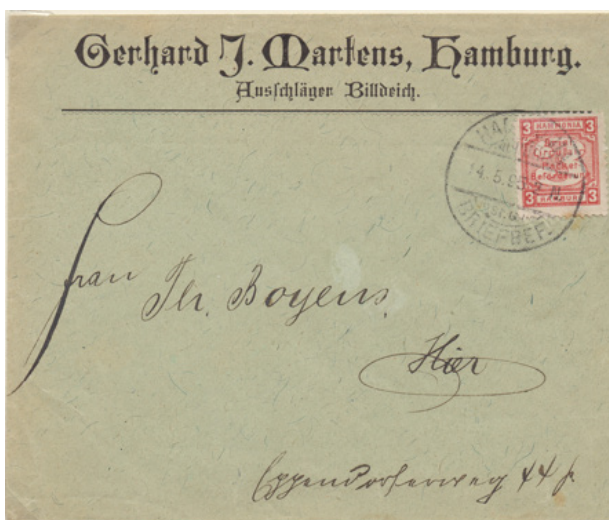 Gerhard J. Martens, Hamburg.
Ausschläger Billdeich.
3 HAMMONIA 3
14.5.95
3 HAMBURG 3
Frau Th. Boyens.
Hier
Eppendorferweg 44 p.